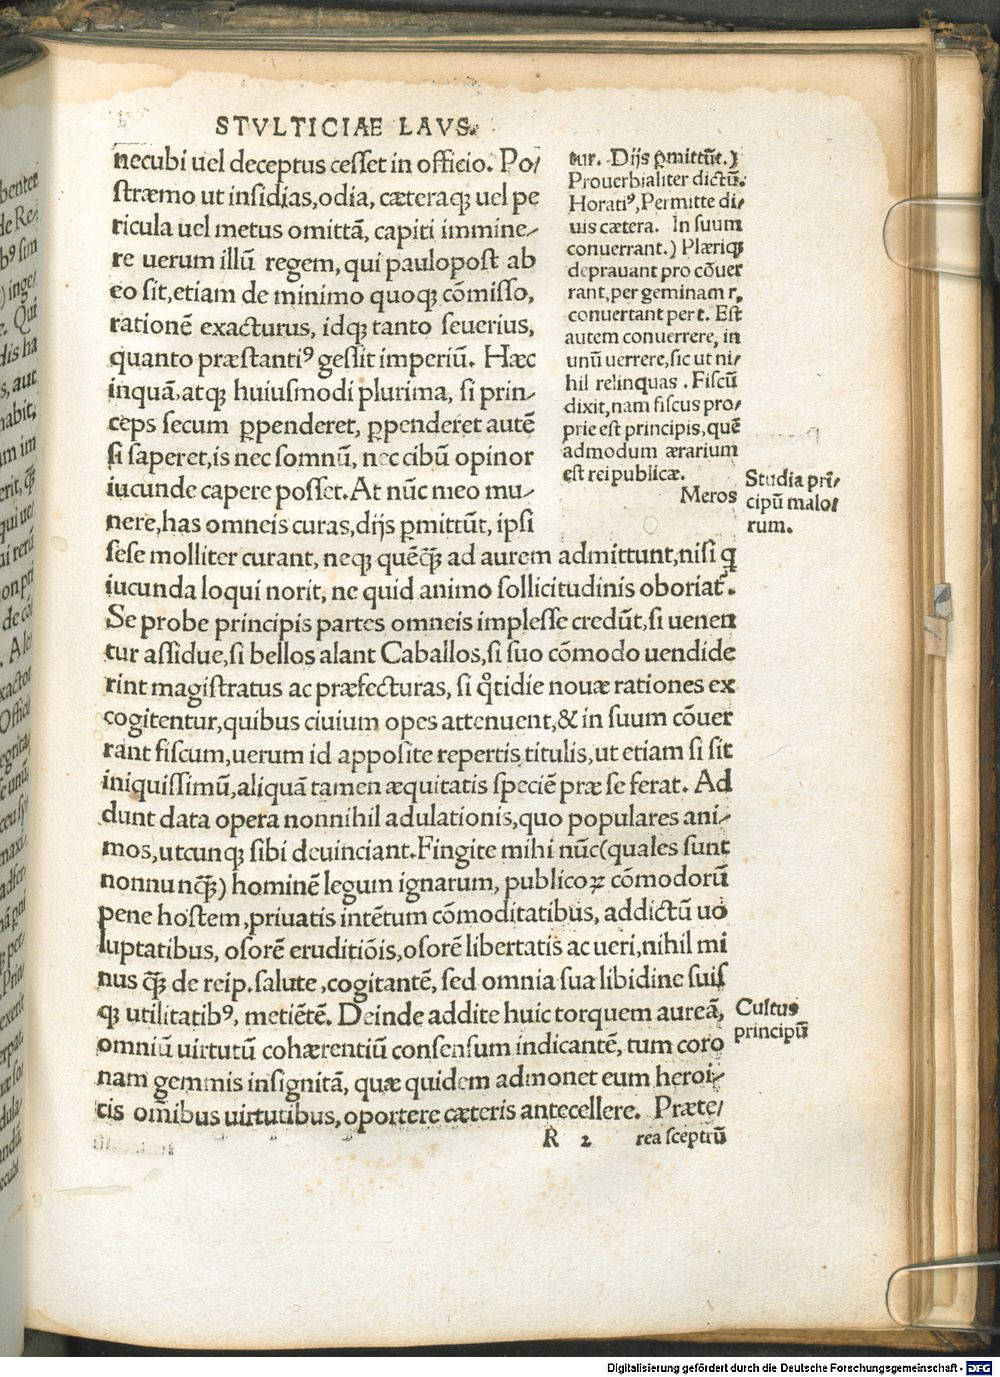 STVLTICIAE LAVS.
necubi uel deceptus cesset in officio. Po/
stræmo ut insidias, odia, cæteraq́; uel pe
ricula uel metus omittā, capiti immine/
re uerum illū regem, qui paulopost ab
eo sit, etiam de minimo quoq; cōmisso,
rationē exacturus, idq; tanto seuerius,
quanto præstantiꝰ gessit imperiū. Hæc
inquā, atq; huiusmodi plurima, si prin/
ceps secum ꝑpenderet, ꝑpenderet autē
si saperet, is nec somnū, nec cibū opinor
iucunde capere posset. At nūc meo mu/
nere, has omneis curas, dijs ꝑmittūt, ipsi
sese molliter curant, neq; quēq̄; ad aurem admittunt, nisi q
iucunda loqui norit, ne quid animo sollicitudinis oboriat᷑.
Se probe principis partes omneis implesse credūt, si uenen
tur assidue, si bellos alant Caballos, si suo cōmodo uendide
rint magistratus ac præfecturas, si qͦtidie nouæ rationes ex
cogitentur, quibus ciuium opes attenuent, & in suum cōuer
rant fiscum, uerum id apposite repertis titulis, ut etiam si sit
iniquissimū, aliquā tamen æquitatis speciē præ se ferat. Ad
dunt data opera nonnihil adulationis, quo populares ani/
mos, utcunq; sibi deuinciant. Fingite mihi nūc (quales sunt
nonnunq̄;) hominē legum ignarum, publicoꝝ cōmodorū
pene hostem, priuatis intētum cōmoditatibus, addictū uo
luptatibus, osorē eruditiōis, osorē libertatis ac ueri, nihil mi
nus q̄; de reip. salute, cogitantē, sed omnia sua libidine suis
q; utilitatibꝰ, metiētē. Deinde addite huic torquem aureā,
omniū uirtutū cohærentiū consensum indicantē, tum coro
nam gemmis insignitā, quæ quidem admonet eum heroi/
cis om̄ibus uirtutibus, oportere cæteris antecellere. Præte/
R 2 rea sceptrū
tur. Dijs ꝑmittūt.)
Prouerbialiter dictū.
Horatiꝰ, Permitte di/
uis cætera. In suum
conuerrant.) Plæriq;
deprauant pro cōuer
rant, per geminam r,
conuertant per t. Est
autem conuerrere, in
unū uerrere, sic ut ni/
hil relinquas. Fiscū
dixit, nam fiscus pro/
prie est principis, quē
admodum ærarium
est reipublicæ.
Meros
Studia prī/
cipū malo/
rum.
Cultus
principū
benter
de Re/
bꝰ sim
) inge/
. Qui
dis ha
s, aut
habit,
um im
erit, q̄;
qui ue
ui rerū
on pri
de cō
. Ale
xactor
Offici
egrita
e unū
ceu sy
maxi
adfer
Digitalisierung gefördert durch die Deutsche Forschungsgemeinschaft - DFG